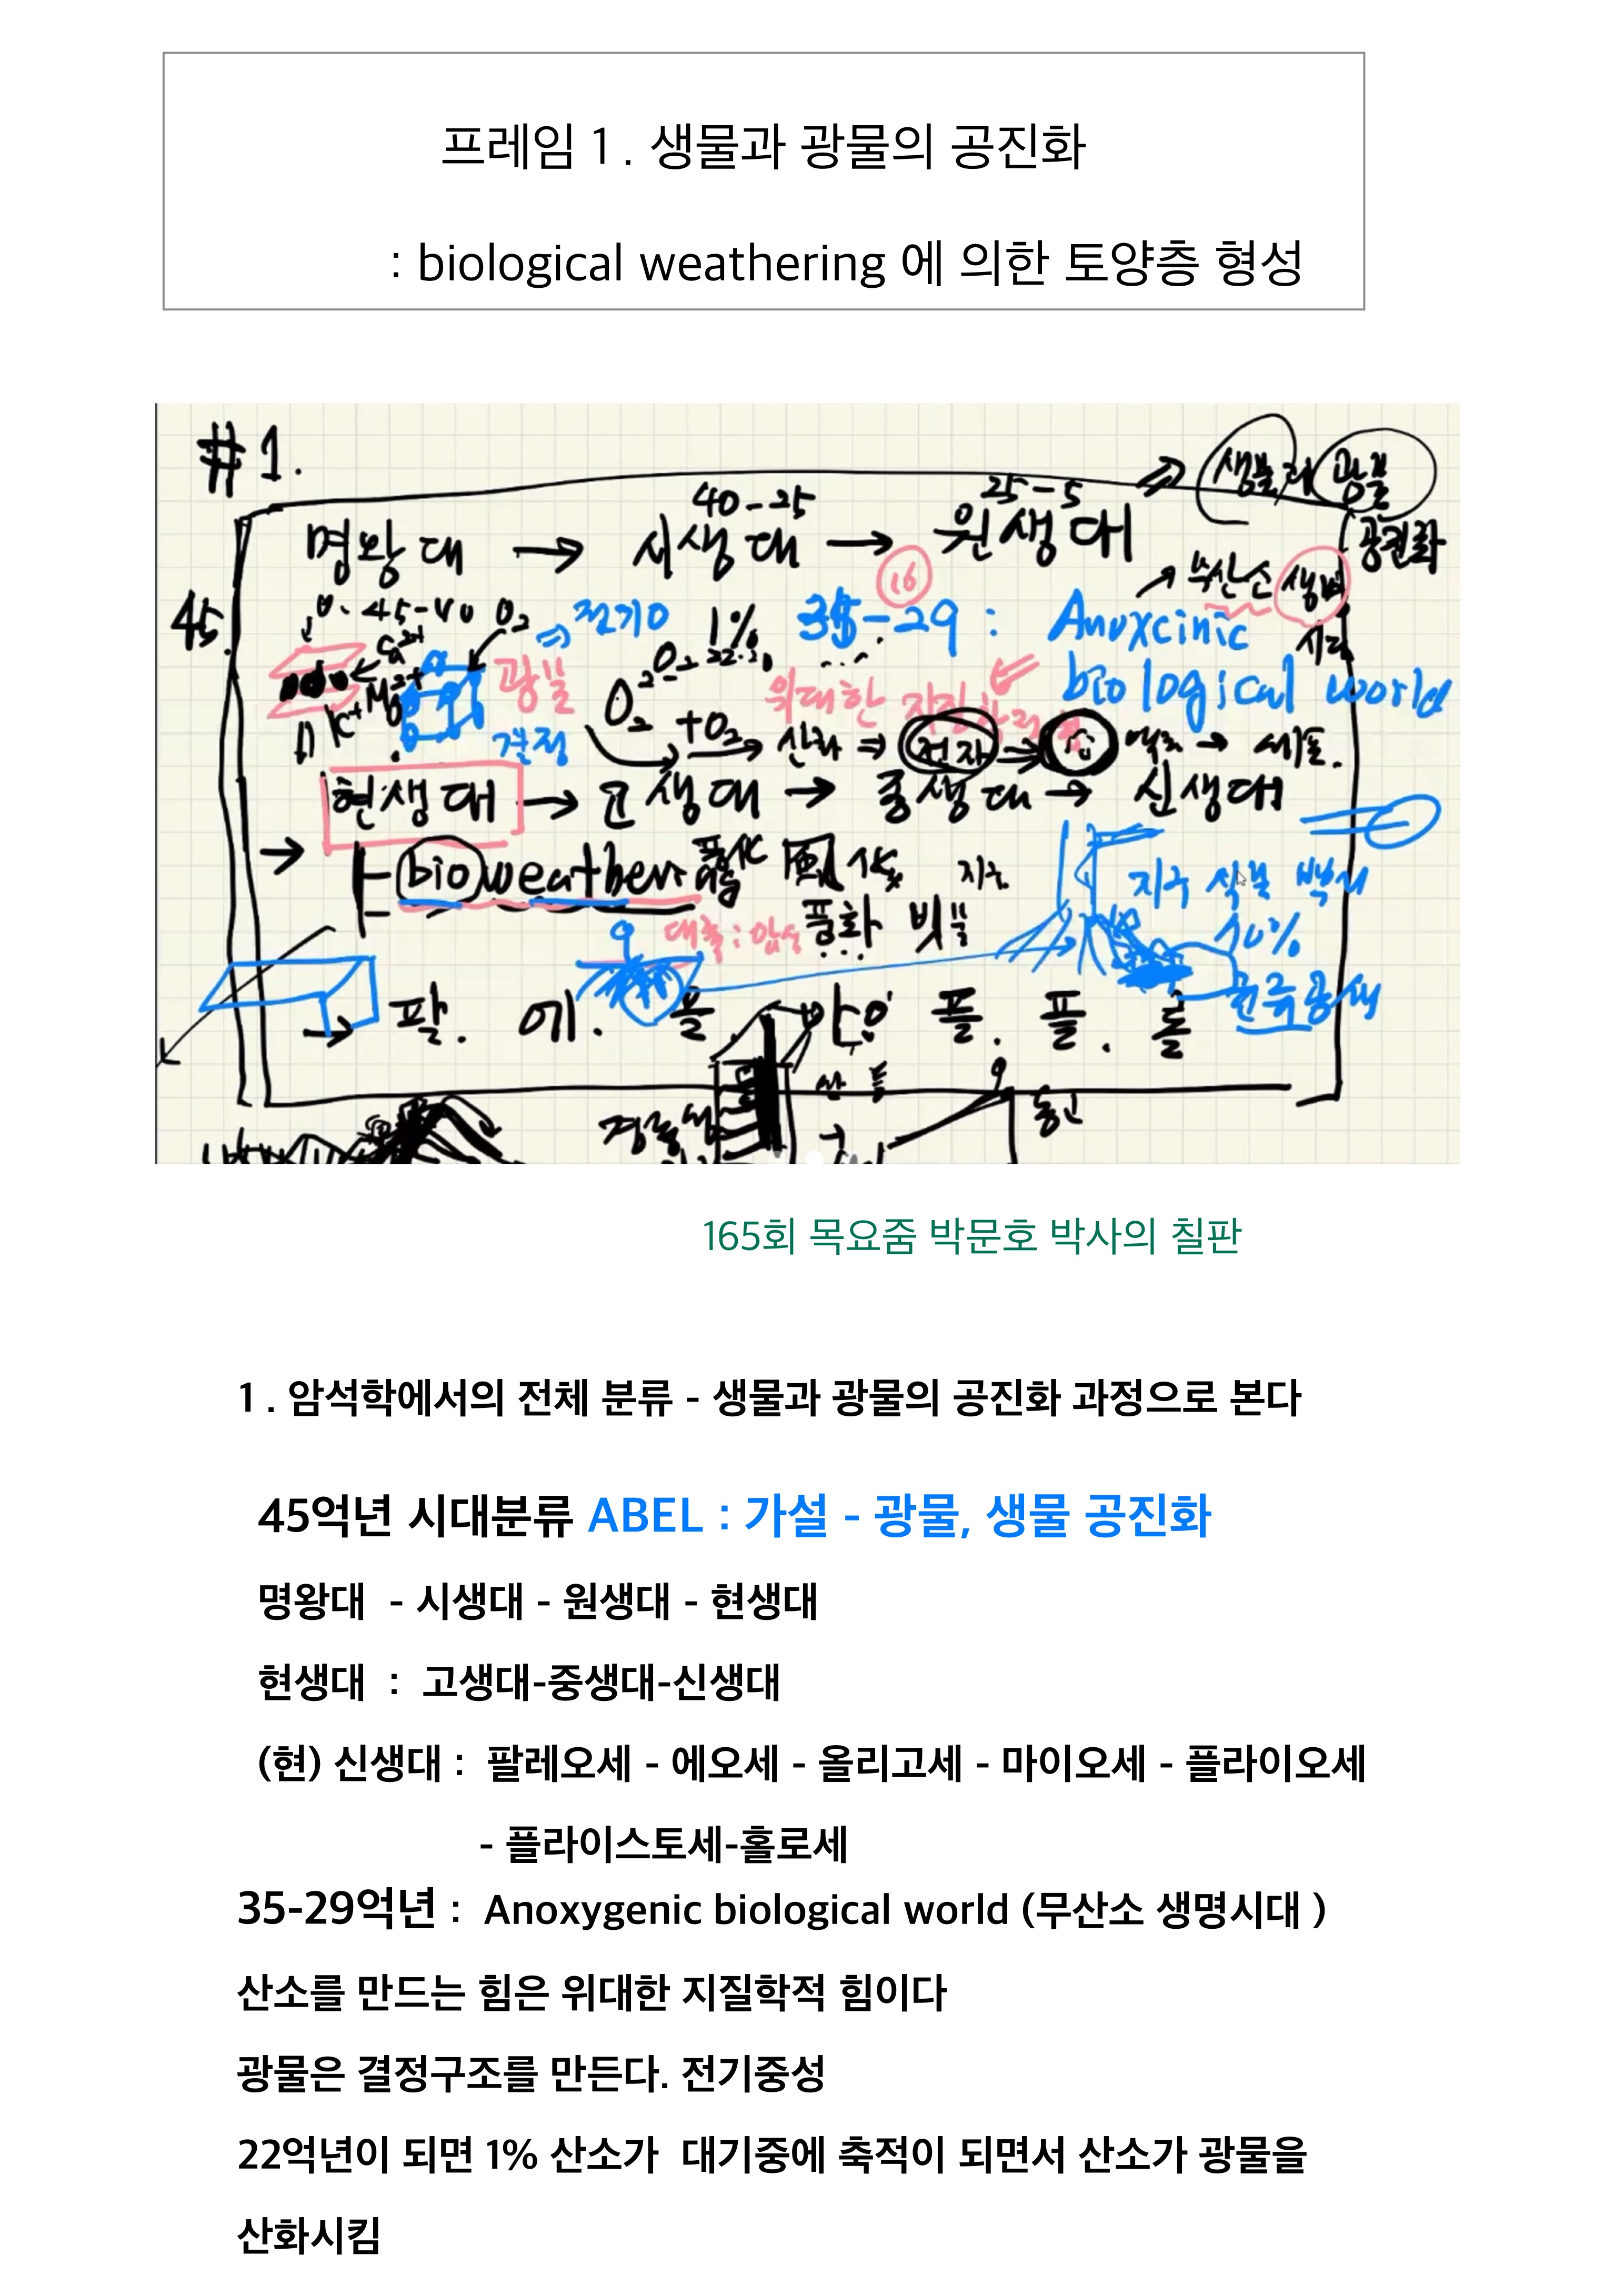 프레임 1. 생물과 광물의 공진화
: biological weathering 에 의한 토양층 형성
#1.
생물과 광물
40-25
25-5
명왕대 → 시생대 → 원생대
공진화
16
무산소 생명
45.
0. 45-40 O₂
전기0
1%
35-29 : Anoxcinic
시대
Ca²⁺
Mg²⁺
K⁺
광물
결정
O₂
+O₂
위대한 지질학적 힘
biological world
산화 ⇒ 전자 ⇒
현생대 → 고생대 → 중생대 → 신생대
bioweathering
風化
지구
지구 식물
10%
풍화 빗물
대륙:암석
팔. 에. 올 마이 플. 플. 홀
165회 목요줌 박문호 박사의 칠판
1. 암석학에서의 전체 분류 - 생물과 광물의 공진화 과정으로 본다
45억년 시대분류 ABEL : 가설 - 광물, 생물 공진화
명왕대 - 시생대 - 원생대 - 현생대
현생대 : 고생대-중생대-신생대
(현) 신생대 : 팔레오세 - 에오세 - 올리고세 - 마이오세 - 플라이오세
- 플라이스토세-홀로세
35-29억년 : Anoxygenic biological world (무산소 생명시대 )
산소를 만드는 힘은 위대한 지질학적 힘이다
광물은 결정구조를 만든다. 전기중성
22억년이 되면 1% 산소가 대기중에 축적이 되면서 산소가 광물을
산화시킴